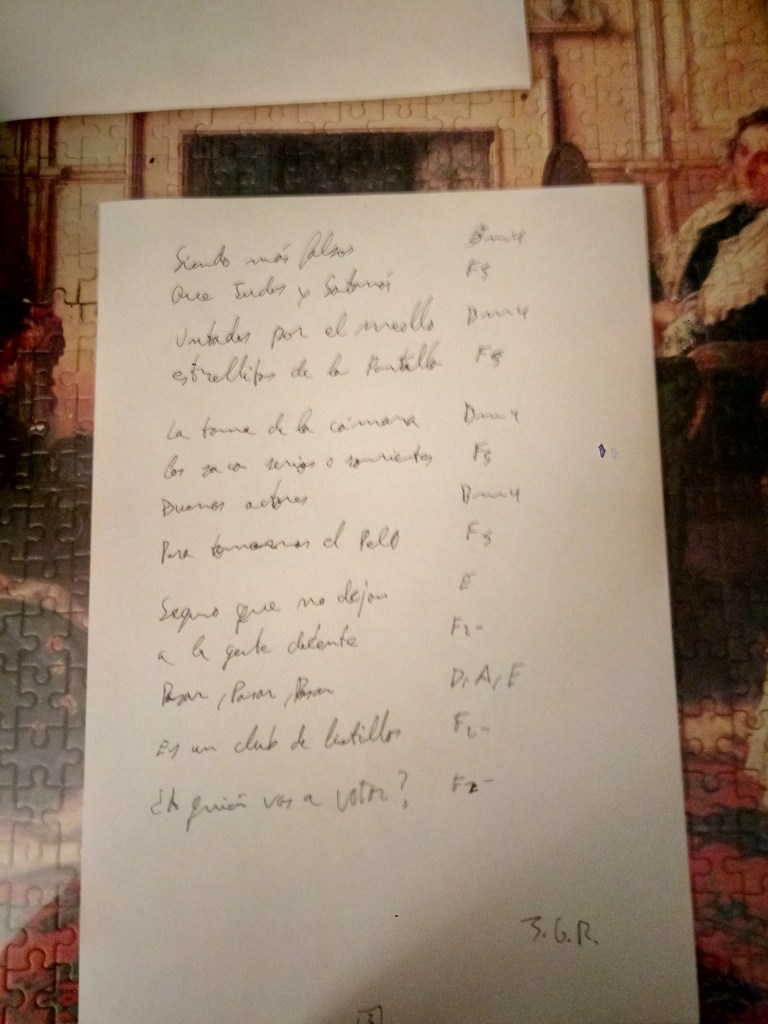 Siendo más falsos Bmm4
Que Judas y Satanás F5
Untados por el meollo Bmm4
estrellitas de la Pantalla F5
La toma de la cámara Bmm4
los saca serios o sonrientes F5
Buenos actores Bmm4
Para tomarnos el Pelo F5
Seguro que no dejan E
a la gente F2-
Pasar, Pasar, Pasar D, A, E
Es un club de listillos F2-
¿A quién vas a votar? F2-
J.G.R.
3